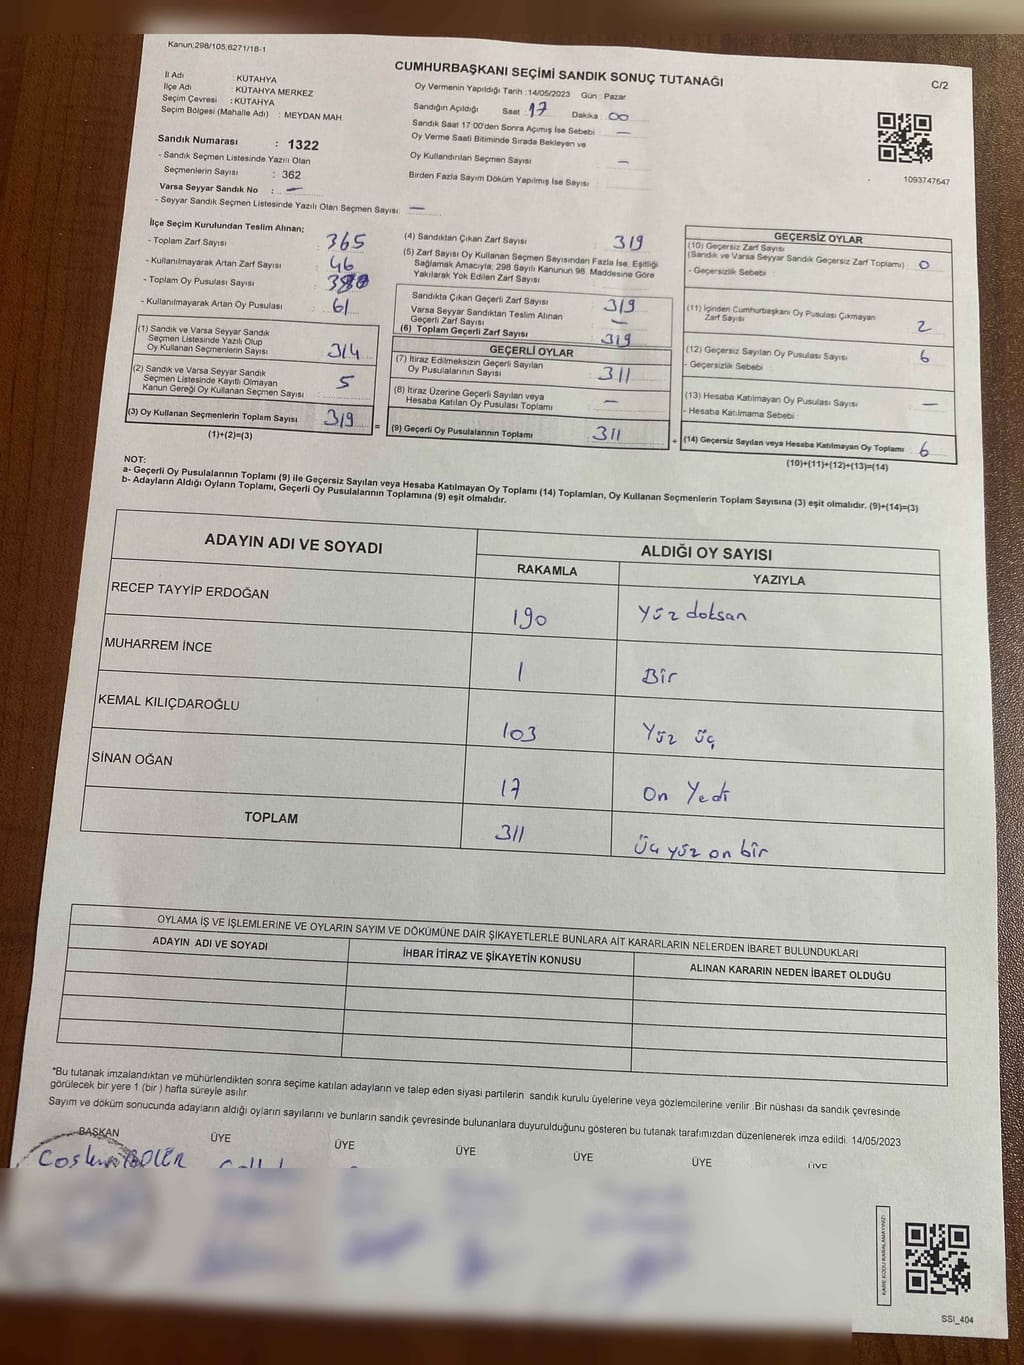 Kanun:298/105,6271/18-1
CUMHURBAŞKANI SEÇİMİ SANDIK SONUÇ TUTANAĞI
C/2
İl Adı : KÜTAHYA
İlçe Adı : KÜTAHYA MERKEZ
Seçim Çevresi : KÜTAHYA
Seçim Bölgesi (Mahalle Adı) : MEYDAN MAH.
Sandık Numarası : 1322
- Sandık Seçmen Listesinde Yazılı Olan
Seçmenlerin Sayısı : 362
Varsa Seyyar Sandık No : —
- Seyyar Sandık Seçmen Listesinde Yazılı Olan Seçmen Sayısı: —
Oy Vermenin Yapıldığı Tarih :14/05/2023 Gün : Pazar
Sandığın Açıldığı Saat 17 Dakika 00
Sandık Saat 17:00'den Sonra Açılmış İse Sebebi : —
Oy Verme Saati Bitiminde Sırada Bekleyen ve
Oy Kullandırılan Seçmen Sayısı : —
Birden Fazla Sayım Döküm Yapılmış İse Sayısı :
1093747647
İlçe Seçim Kurulundan Teslim Alınan;
- Toplam Zarf Sayısı : 365
- Kullanılmayarak Artan Zarf Sayısı : 46
- Toplam Oy Pusulası Sayısı
- Kullanılmayarak Artan Oy Pusulası : 61
(1) Sandık ve Varsa Seyyar Sandık
Seçmen Listesinde Yazılı Olup
Oy Kullanan Seçmenlerin Sayısı : 314
(2) Sandık ve Varsa Seyyar Sandık
Seçmen Listesinde Kayıtlı Olmayan
Kanun Gereği Oy Kullanan Seçmen Sayısı : 5
(3) Oy Kullanan Seçmenlerin Toplam Sayısı : 319
(1)+(2)=(3)
=
(4) Sandıktan Çıkan Zarf Sayısı : 319
(5) Zarf Sayısı Oy Kullanan Seçmen Sayısından Fazla İse, Eşitliği
Sağlamak Amacıyla, 298 Sayılı Kanunun 98. Maddesine Göre
Yakılarak Yok Edilen Zarf Sayısı
Sandıkta Çıkan Geçerli Zarf Sayısı : 319
Varsa Seyyar Sandıktan Teslim Alınan
Geçerli Zarf Sayısı : —
(6) Toplam Geçerli Zarf Sayısı : 319
GEÇERLİ OYLAR
(7) İtiraz Edilmeksizin Geçerli Sayılan
Oy Pusulalarının Sayısı : 311
(8) İtiraz Üzerine Geçerli Sayılan veya
Hesaba Katılan Oy Pusulası Toplamı : —
(9) Geçerli Oy Pusulalarının Toplamı : 311
+
GEÇERSİZ OYLAR
(10) Geçersiz Zarf Sayısı
(Sandık ve Varsa Seyyar Sandık Geçersiz Zarf Toplamı) : 0
- Geçersizlik Sebebi :
(11) İçinden Cumhurbaşkanı Oy Pusulası Çıkmayan
Zarf Sayısı : 2
(12) Geçersiz Sayılan Oy Pusulası Sayısı : 6
- Geçersizlik Sebebi :
(13) Hesaba Katılmayan Oy Pusulası Sayısı : —
- Hesaba Katılmama Sebebi :
(14) Geçersiz Sayılan veya Hesaba Katılmayan Oy Toplamı : 6
(10)+(11)+(12)+(13)=(14)
NOT:
a- Geçerli Oy Pusulalarının Toplamı (9) ile Geçersiz Sayılan veya Hesaba Katılmayan Oy Toplamı (14) Toplamları, Oy Kullanan Seçmenlerin Toplam Sayısına (3) eşit olmalıdır. (9)+(14)=(3)
b- Adayların Aldığı Oyların Toplamı, Geçerli Oy Pusulalarının Toplamına (9) eşit olmalıdır.
ADAYIN ADI VE SOYADI
ALDIĞI OY SAYISI
RAKAMLA YAZIYLA
RECEP TAYYİP ERDOĞAN 190 Yüz doksan
MUHARREM İNCE 1 Bir
KEMAL KILIÇDAROĞLU 103 Yüz üç
SİNAN OĞAN 17 On Yedi
TOPLAM 311 Üç yüz on bir
OYLAMA İŞ VE İŞLEMLERİNE VE OYLARIN SAYIM VE DÖKÜMÜNE DAİR ŞİKAYETLERLE BUNLARA AİT KARARLARIN NELERDEN İBARET BULUNDUKLARI
ADAYIN ADI VE SOYADI İHBAR İTİRAZ VE ŞİKAYETİN KONUSU ALINAN KARARIN NEDEN İBARET OLDUĞU
*Bu tutanak imzalandıktan ve mühürlendikten sonra seçime katılan adayların ve talep eden siyasi partilerin sandık kurulu üyelerine veya gözlemcilerine verilir .Bir nüshası da sandık çevresinde
görülecek bir yere 1 (bir ) hafta süreyle asılır.
Sayım ve döküm sonucunda adayların aldığı oyların sayılarını ve bunların sandık çevresinde bulunanlara duyurulduğunu gösteren bu tutanak tarafımızdan düzenlenerek imza edildi. 14/05/2023
BAŞKAN ÜYE ÜYE ÜYE ÜYE ÜYE ÜYE
KARE KODU KARALAMAYINIZ!
SSI_404